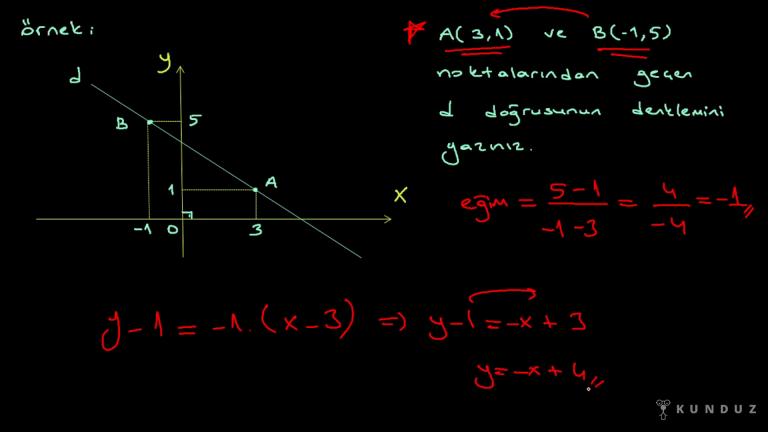 örnek:
A(3,1) ve B(-1,5)
noktalarından geçen
d doğrusunun denklemini
yazınız.
y
d
B
5
1
A
x
-1 0 3
eğim = 5-1 / -1-3 = 4 / -4 = -1
y-1 = -1.(x-3) => y-1 = -x+3
y = -x+4
KUNDUZ